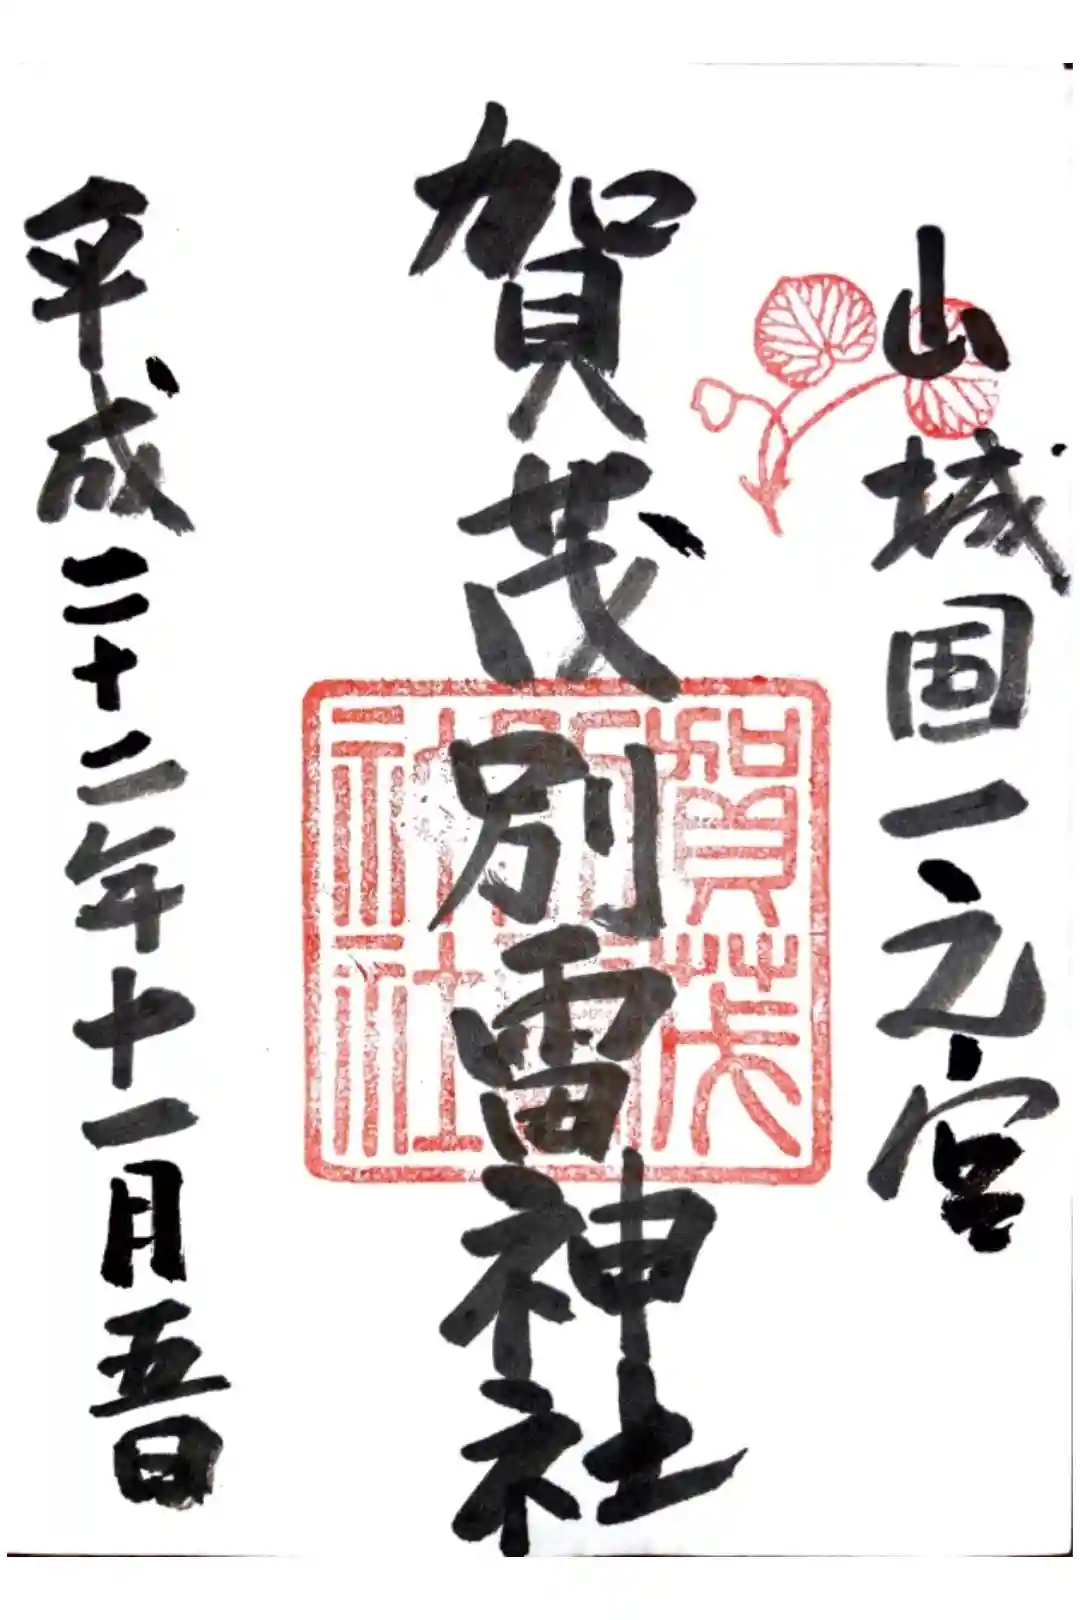 山城国一之宮
賀茂別雷神社
平成二十二年十一月五日
賀茂
神社